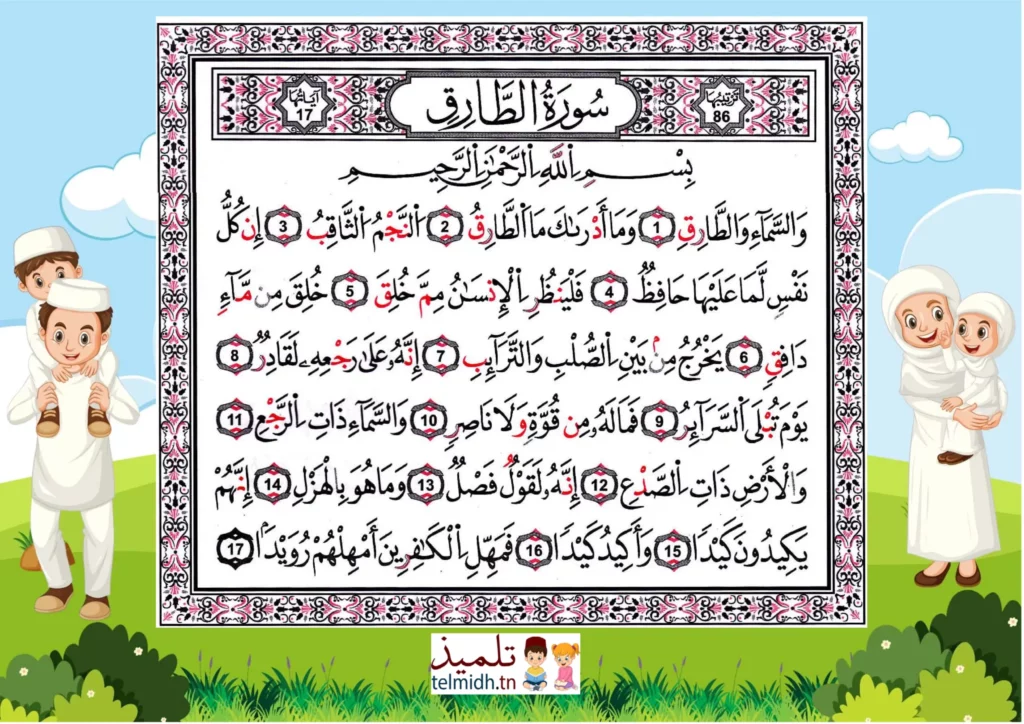 آيَاتُهَا 17
سُورَةُ الطَّارِقِ
تَرْتِيبُهَا 86
بِسْمِ اِ۬للَّهِ اِ۬لرَّحْمَٰنِ اِ۬لرَّحِيمِ
وَالسَّمَآءِ وَالطَّارِقِ 1 وَمَآ أَدْرَىٰكَ مَا اَ۬لطَّارِقُ 2 اُ۬لنَّجْمُ اُ۬لثَّاقِبُ 3 إِن كُلُّ
نَفْسٍ لَّمَا عَلَيْهَا حَافِظٌ 4 فَلْيَنظُرِ اِ۬لْإِنسَٰنُ مِمَّ خُلِقَ 5 خُلِقَ مِن مَّآءٍ
دَافِقٍ 6 يَخْرُجُ مِنۢ بَيْنِ اِ۬لصُّلْبِ وَالتَّرَآئِبِ 7 إِنَّهُۥ عَلَىٰ رَجْعِهِۦ لَقَادِرٌ 8
يَوْمَ تُبْلَى اَ۬لسَّرَآئِرُ 9 فَمَا لَهُۥ مِن قُوَّةٍ وَلَا نَاصِرٍ 10 وَالسَّمَآءِ ذَاتِ اِ۬لرَّجْعِ 11
وَالْأَرْضِ ذَاتِ اِ۬لصَّدْعِ 12 إِنَّهُۥ لَقَوْلٌ فَصْلٌ 13 وَمَا هُوَ بِالْهَزْلِ 14 إِنَّهُمْ
يَكِيدُونَ كَيْدًا 15 وَأَكِيدُ كَيْدًا 16 فَمَهِّلِ اِ۬لْكَٰفِرِينَ أَمْهِلْهُمْ رُوَيْدًا 17
تلميذ
telmidh.tn